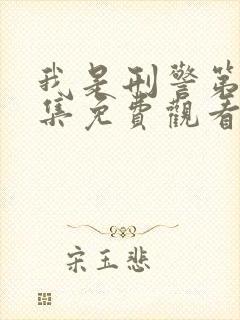 我是刑警第
集免費觀看
宋玉悲